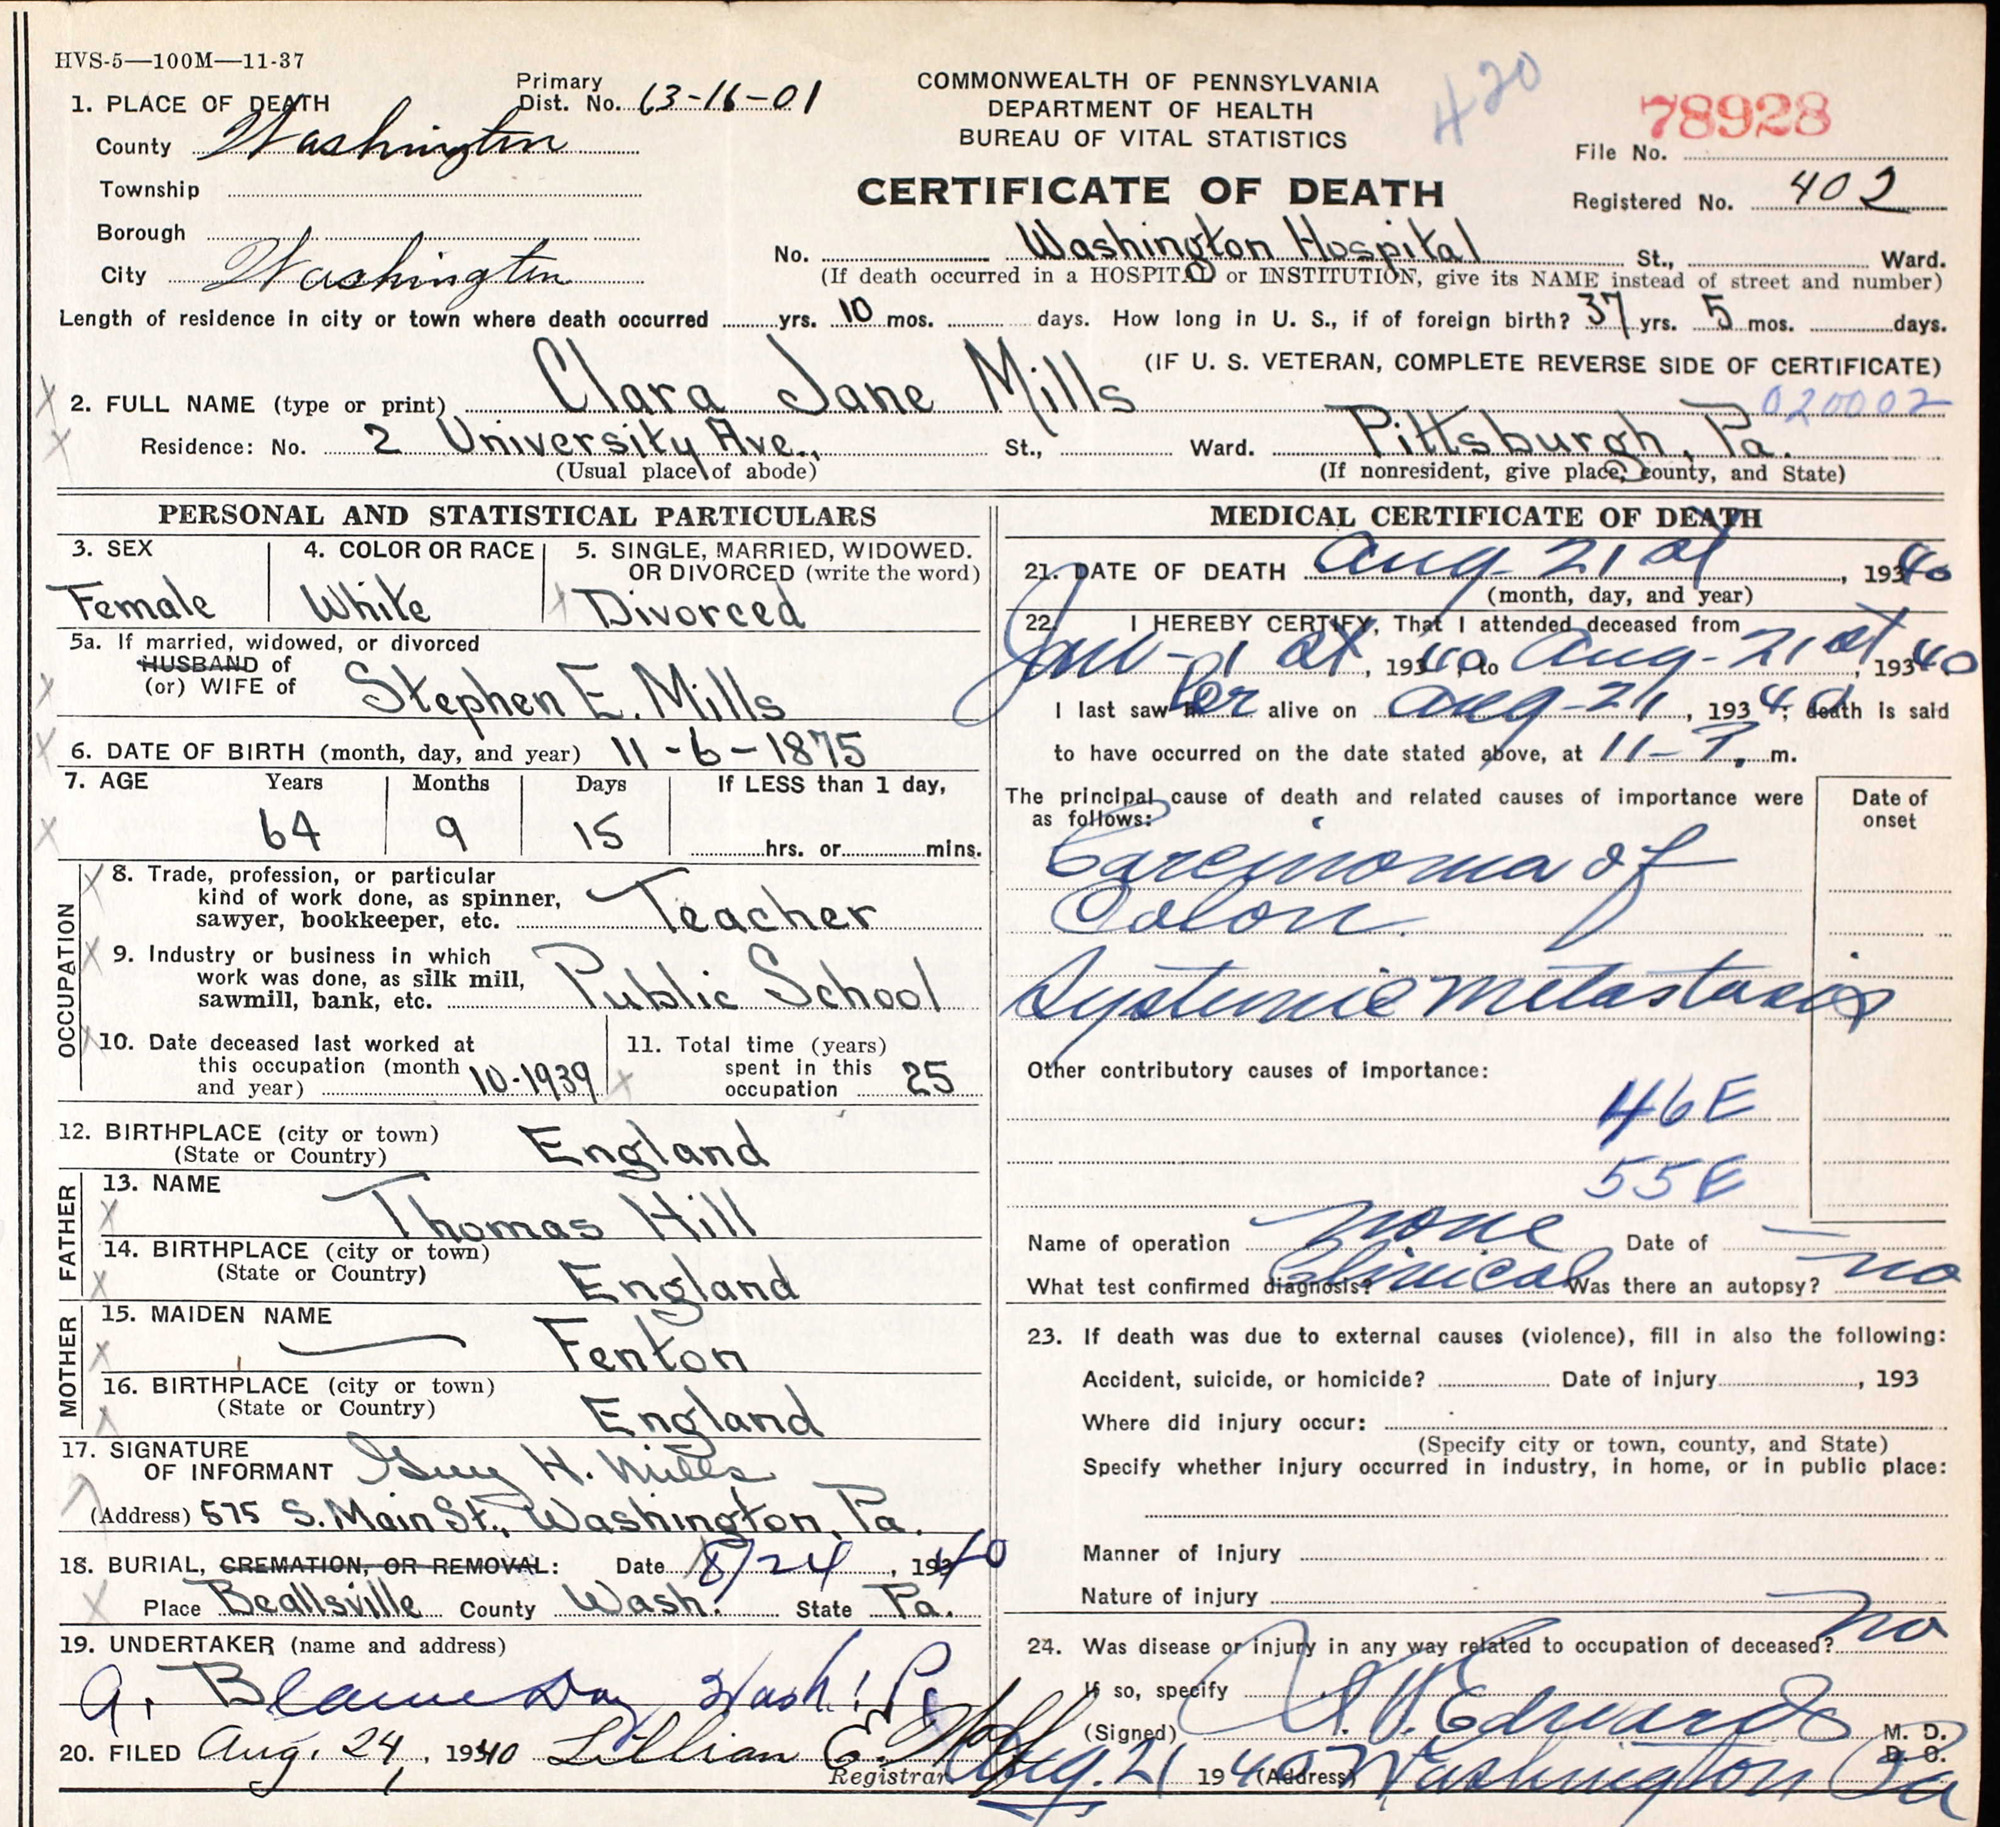 HVS-5—100M—11-37
COMMONWEALTH OF PENNSYLVANIA
DEPARTMENT OF HEALTH
BUREAU OF VITAL STATISTICS
420
78928
File No.
CERTIFICATE OF DEATH
Registered No. 402
1. PLACE OF DEATH Primary Dist. No. 63-16-01
County Washington
Township
Borough
City Washington
No. Washington Hospital St., Ward.
(If death occurred in a HOSPITAL or INSTITUTION, give its NAME instead of street and number)
Length of residence in city or town where death occurred yrs. 10 mos. days. How long in U. S., if of foreign birth? 37 yrs. 5 mos. days.
(IF U. S. VETERAN, COMPLETE REVERSE SIDE OF CERTIFICATE)
2. FULL NAME (type or print) Clara Jane Mills 020002
Residence: No. 2 University Ave., St., Ward. Pittsburgh, Pa.
(Usual place of abode) (If nonresident, give place, county, and State)
PERSONAL AND STATISTICAL PARTICULARS
3. SEX 4. COLOR OR RACE 5. SINGLE, MARRIED, WIDOWED.
OR DIVORCED (write the word)
Female White Divorced
5a. If married, widowed, or divorced
HUSBAND of
(or) WIFE of Stephen E. Mills
6. DATE OF BIRTH (month, day, and year) 11-6-1875
7. AGE Years Months Days If LESS than 1 day,
64 9 15 hrs. or mins.
OCCUPATION
8. Trade, profession, or particular
kind of work done, as spinner,
sawyer, bookkeeper, etc. Teacher
9. Industry or business in which
work was done, as silk mill,
sawmill, bank, etc. Public School
10. Date deceased last worked at
this occupation (month
and year) 10-1939
11. Total time (years)
spent in this
occupation 25
12. BIRTHPLACE (city or town) England
(State or Country)
FATHER
13. NAME Thomas Hill
14. BIRTHPLACE (city or town)
(State or Country) England
MOTHER
15. MAIDEN NAME — Fenton
16. BIRTHPLACE (city or town)
(State or Country) England
17. SIGNATURE
OF INFORMANT Guy H. Mills
(Address) 575 S. Main St., Washington, Pa.
18. BURIAL, CREMATION, OR REMOVAL: Date 8/24, 19340
Place Beallsville County Wash. State Pa.
19. UNDERTAKER (name and address)
A. Blaine Day Wash. Pa
20. FILED Aug. 24, 1940 Lillian E.
Registrar
MEDICAL CERTIFICATE OF DEATH
21. DATE OF DEATH Aug-21st, 19340
(month, day, and year)
22. I HEREBY CERTIFY, That I attended deceased from
Jan-1st, 19340, to Aug-21st, 19340
I last saw her alive on Aug-21, 1940; death is said
to have occurred on the date stated above, at 11-P. m.
The principal cause of death and related causes of importance were
as follows:
Date of
onset
Carcinoma of
Colon.
Systemic Metastasis
Other contributory causes of importance:
46E
55E
Name of operation None Date of —
What test confirmed diagnosis? Clinical Was there an autopsy? no
23. If death was due to external causes (violence), fill in also the following:
Accident, suicide, or homicide? Date of injury, 193
Where did injury occur:
(Specify city or town, county, and State)
Specify whether injury occurred in industry, in home, or in public place:
Manner of injury
Nature of injury
24. Was disease or injury in any way related to occupation of deceased? no
If so, specify
(Signed) Edwards M. D.
D. O.
Aug. 21 1940 (Address) Washington Pa